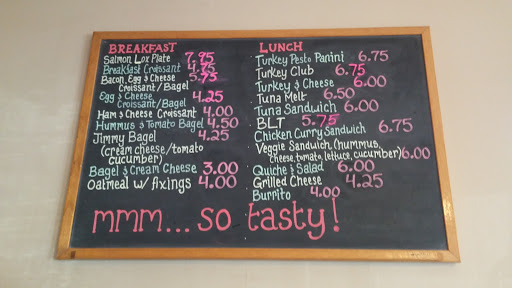 BREAKFAST
Salmon Lox Plate 7.95
Breakfast Croissant 4.75
Bacon, Egg & Cheese 5.75
Croissant/Bagel
Egg & Cheese 4.25
Croissant/Bagel
Ham & Cheese Croissant 4.00
Hummus & Tomato Bagel 4.50
Jimmy Bagel 4.25
(cream cheese/tomato
cucumber)
Bagel & Cream Cheese 3.00
Oatmeal w/ fixings 4.00
LUNCH
Turkey Pesto Panini 6.75
Turkey Club 6.75
Turkey & Cheese 6.00
Tuna Melt 6.50
Tuna Sandwich 6.00
BLT 5.75
Chicken Curry Sandwich 6.75
Veggie Sandwich (hummus,
cheese, tomato, lettuce, cucumber) 6.00
Quiche & Salad 6.00
Grilled Cheese 4.25
Burrito 4.00
mmm... so tasty!